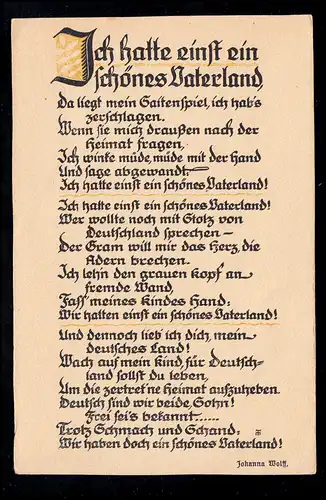 Ich hatte einst ein
schönes Vaterland,
Da liegt mein Saitenspiel, ich hab's
zerschlagen.
Wenn sie mich draußen nach der
Heimat fragen,
Ich winke müde, müde mit der Hand
Und sage abgewandt:—
Ich hatte einst ein schönes Vaterland!
Ich hatte einst ein schönes Vaterland!
Wer wollte noch mit Stolz von
Deutschland sprechen—
Der Gram will mir das Herz, die
Adern brechen.
Ich lehn den grauen Kopf an
fremde Wand,
Fass' meines Kindes Hand:
Wir hatten einst ein schönes Vaterland!
Und dennoch lieb ich dich, mein
deutsches Land!
Wach auf mein Kind, für Deutsch-
land sollst du leben,
Um die zertret'ne Heimat aufzuheben.
Deutsch sind wir beide, Sohn!
Frei sei's bekannt.....
Trotz Schmach und Schand:
Wir haben doch ein schönes Vaterland!
Johanna Wolff.